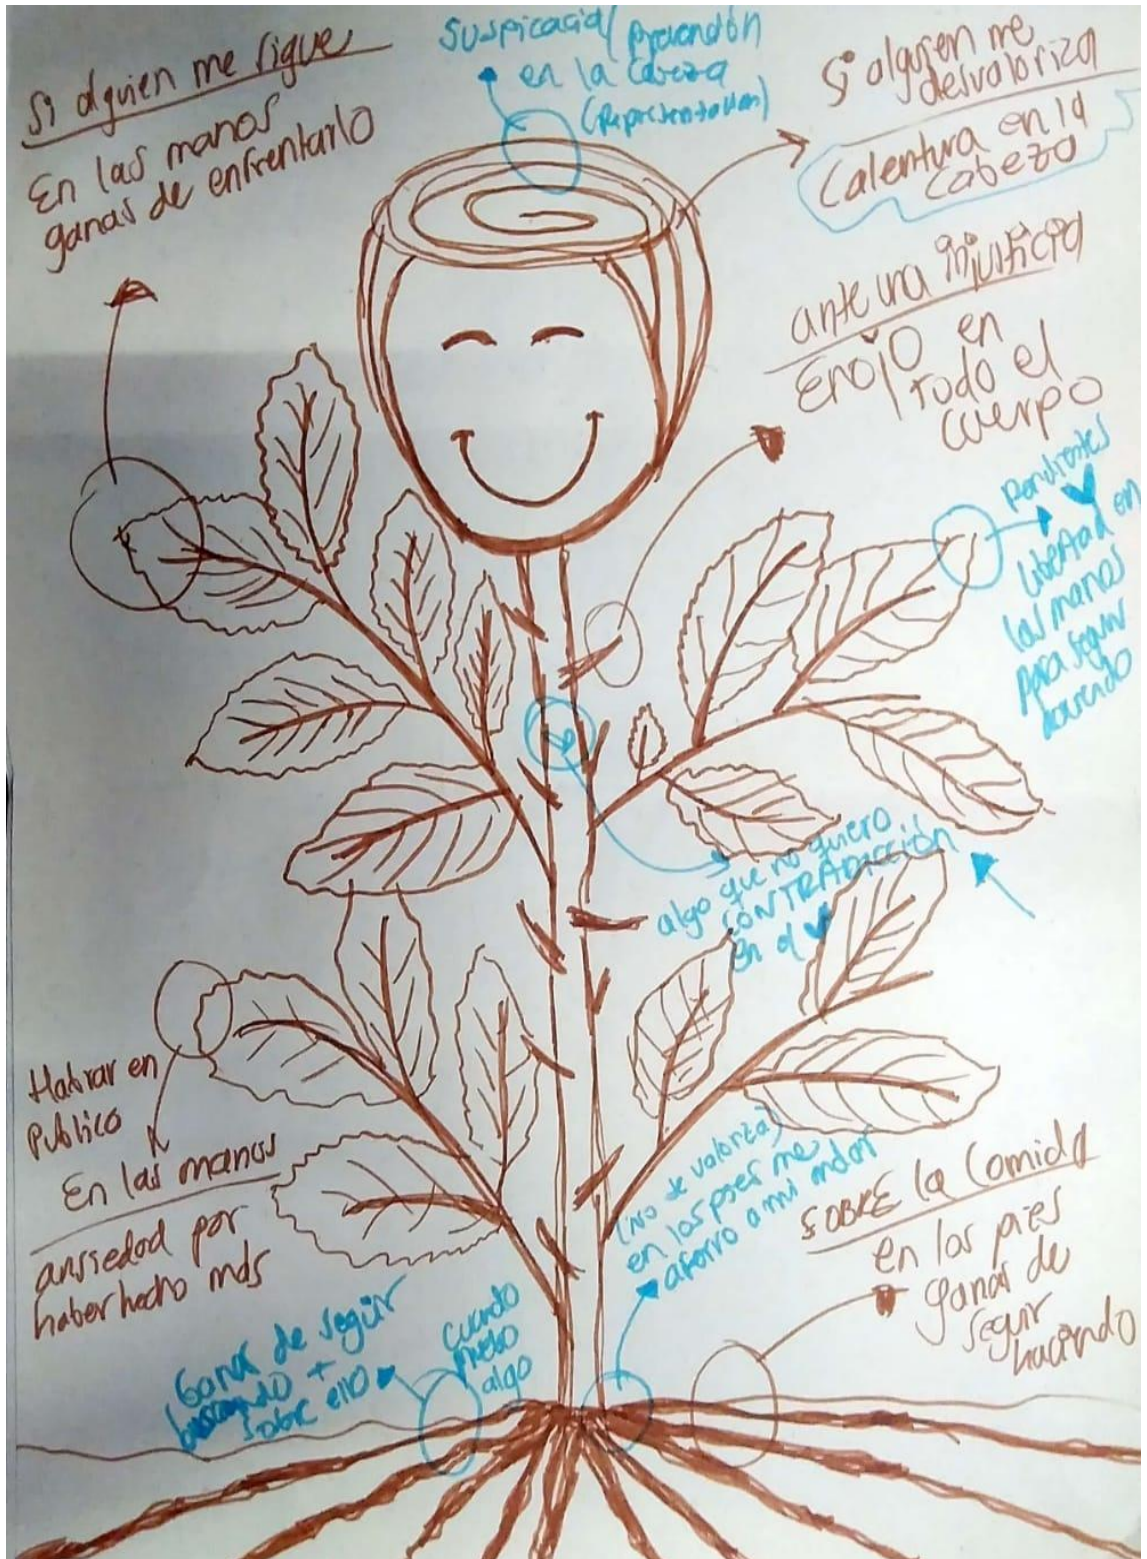 Si alguien me sigue
En las manos
ganas de enfrentarlo
Suspicacia/
en la cabeza
(Representation)
Si alguien me
desvaloriza
Calentura en la
cabeza
ante una injusticia
Enojo en
todo el
cuerpo
Pendientes
libertad en
las manos
para seguir
haciendo
algo que no quiero
CONTRADICCIÓN
en el
Hablar en
Publico
En las manos
ansiedad por
haber hecho mas
(No se valoriza)
en los pies me
aferro a mi
SOBRE la Comida
en los pies
ganas de
seguir
haciendo
Ganas de seguir
buscando +
sobre ello
cuando
algo